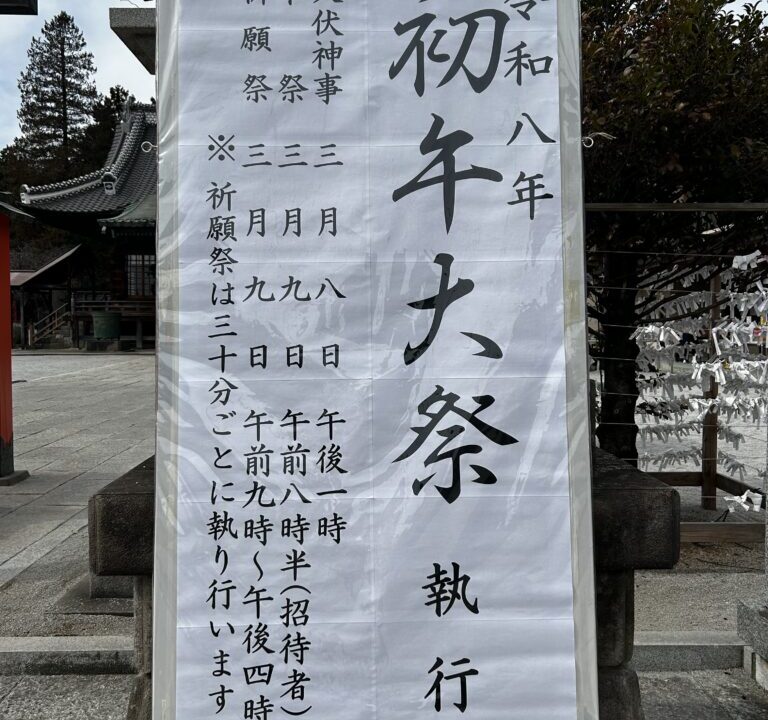 令和八年
初午大祭 執行
伏神事 三月八日 午後一時
祭 三月九日 午前八時半(招待者)
祈願祭 三月九日 午前九時〜午後四時
※祈願祭は三十分ごとに執り行います